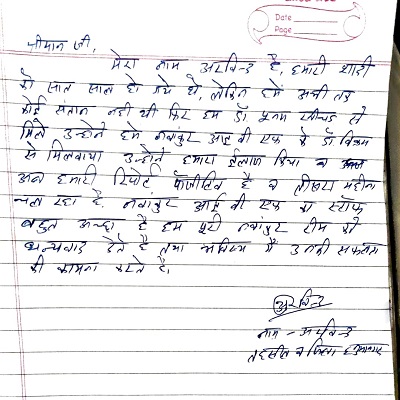 Date
Page
श्रीमान जी,
मेरा नाम अरविन्द है, हमारी शादी
को सात साल हो गये थे, लेकिन हमें अभी तक
कोई संतान नही थी फिर हम डॉ पूनम से
मिले उन्होंने हमें नवांकुर आई वी एफ के डॉ विक्रम
से मिलवाया उन्होंने हमारा ईलाज किया व
अब हमारी रिपोर्ट पॉजीटिव है व तीसरा महीना
चल रहा है. नवांकुर आई वी एफ का स्टॉफ
बहुत अच्छा है हम पूरी नवांकुर टीम को
धन्यवाद देते है तथा भविष्य में उनकी सफलता
की कामना करते है.
अरविन्द
नाम - अरविन्द
तहसील व जिला हनुमानगढ़